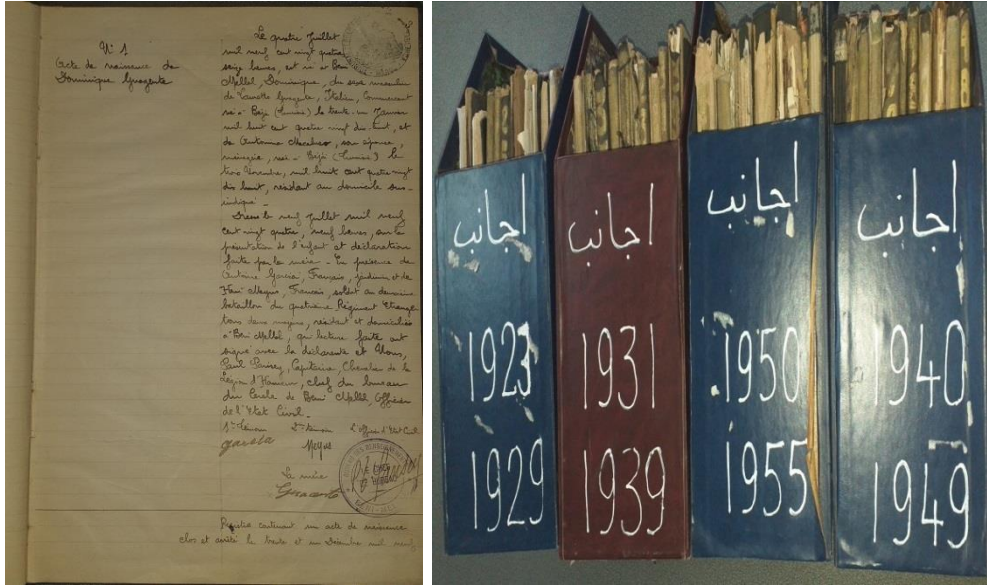 N° 1
Acte de naissance de
Dominique
Le quatre Juillet
mil neuf cent vingt quatre
seize heures, est né à Beni
Mellal, Dominique, du sexe masculin
de Italien, Commerçant
né à le trente un Janvier
mil huit cent quatre vingt dix huit, et
de son épouse,
ménagère, née à le
trois Novembre, mil huit cent quatre vingt
dix huit, résidant au domicile sus-
indiqué
Dressé le neuf Juillet mil neuf
cent vingt quatre, neuf heures, sur la
présentation de l'enfant et déclaration
faite par la mère - En présence de
Antoine Garcia, Français, jardinier et de
Français, soldat au deuxième
bataillon du quatrième Régiment Etranger
tous deux majeurs, résidant et domiciliés
à Beni Mellal, qui lecture faite ont
signé avec la déclarante et Nous,
Paul Capitaine, Chevalier de la
Légion d'Honneur, chef du bureau
du Cercle de Beni Mellal, Officier
de l'Etat Civil.
1er Témoin 2me Témoin L'officier d'Etat Civil
garcia
La mère
Registre contenant un acte de naissance
clos et arrêté le trente et un Décembre mil neuf
اجانب
1923
1929
اجانب
1931
1939
اجانب
1950
1955
اجانب
1940
1949